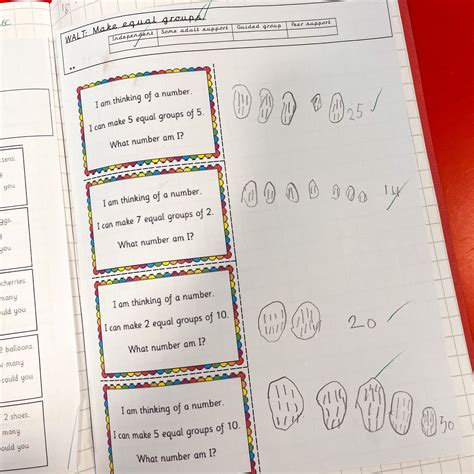 WALT: Make equal groups.
Independent Some adult support Guided group Peer support
I am thinking of a number.
I can make 5 equal groups of 5.
What number am I?
25
I am thinking of a number.
I can make 7 equal groups of 2.
What number am I?
14
I am thinking of a number.
I can make 2 equal groups of 10.
What number am I?
20
I am thinking of a number.
I can make 5 equal groups of 10.
What number am I?
50
you
you
cherries
many
could you
2 balloons.
many
could you
2 shoes.
many
could you